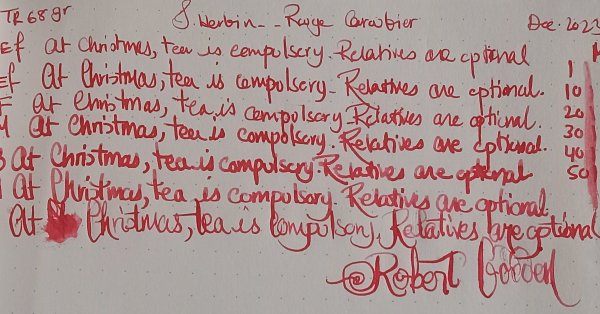 TR 68gr J. Herbin -- Rouge Caroubier Dec. 2023
Ef At Christmas, tea is compulsory. Relatives are optional
Ef At Christmas, tea is compulsory. Relatives are optional. 10
F At Christmas, tea is compulsory. Relatives are optional. 20
M At Christmas, tea is compulsory. Relatives are optional. 30
B At Christmas, tea is compulsory. Relatives are optional 40
At Christmas, tea is compulsory. Relatives are optional 50
At Christmas, tea is compulsory. Relatives are optional
Robert Godden